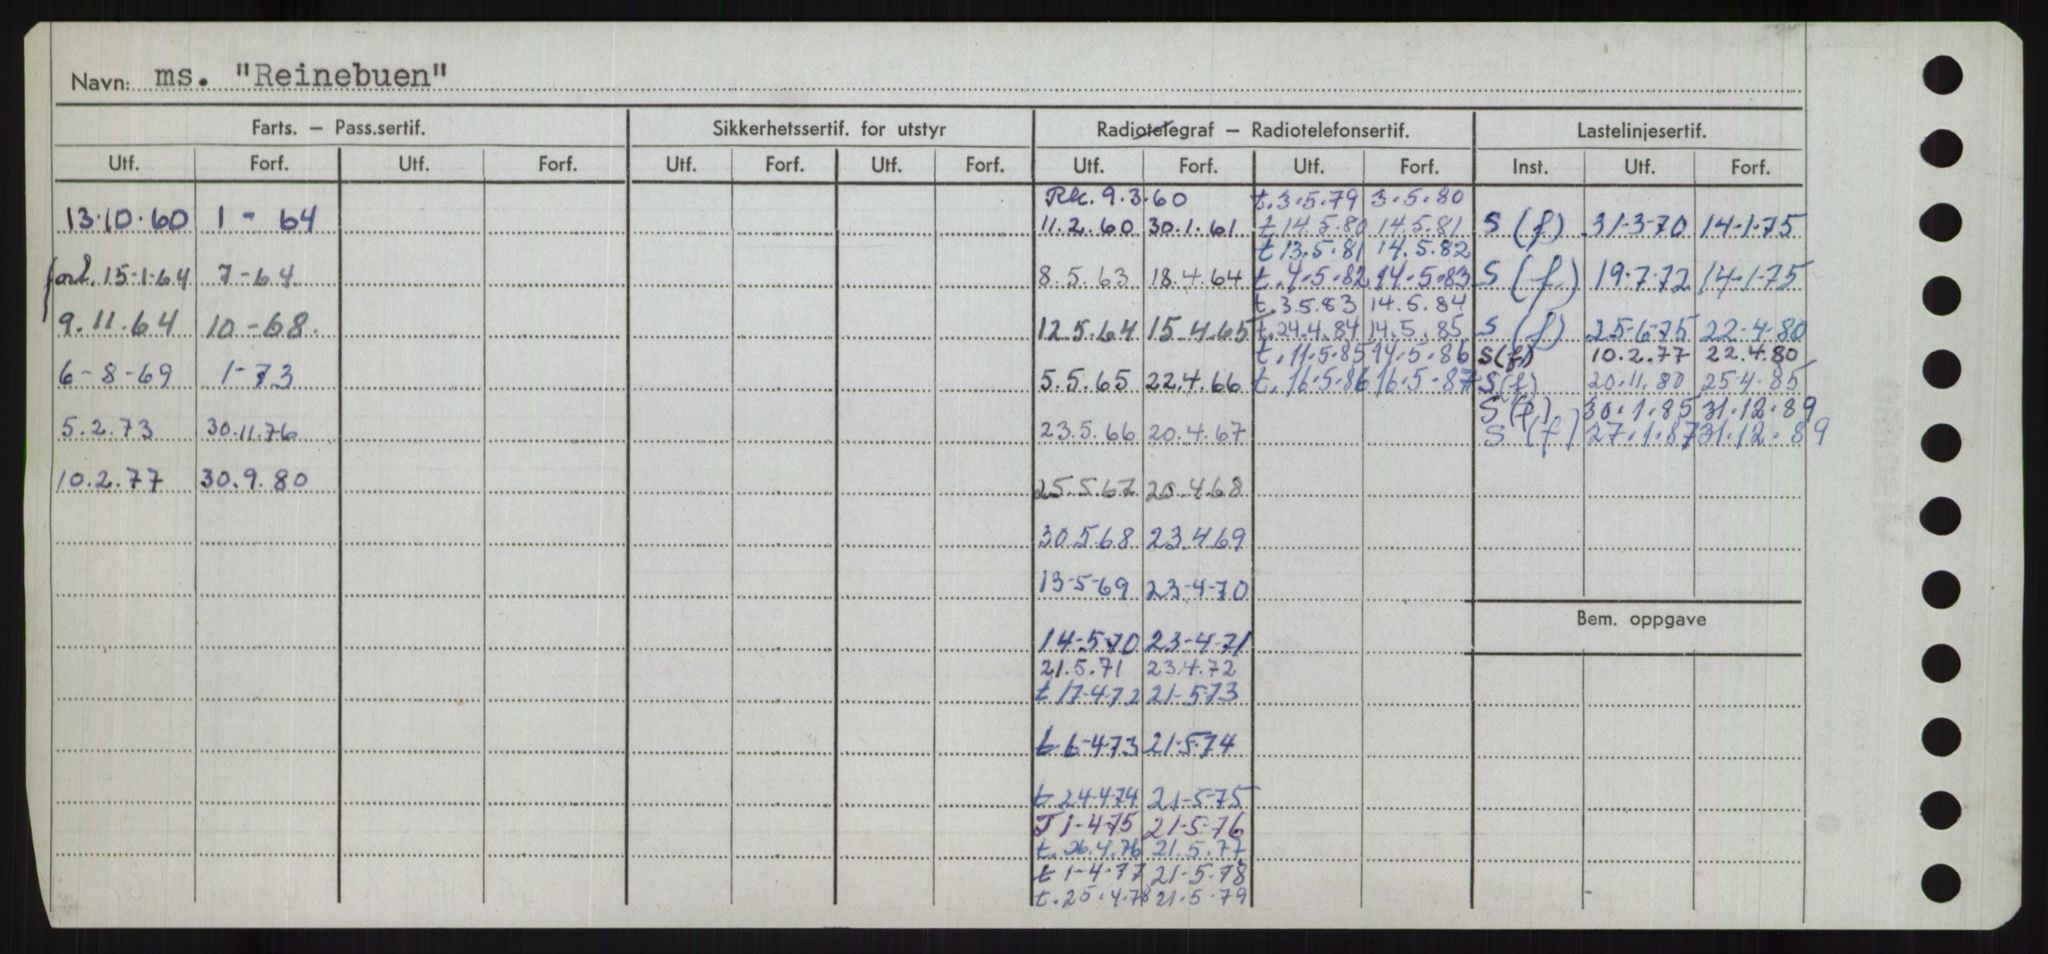 Navn: ms. "Reinebuen"
Farts. – Pass.sertif. Sikkerhetssertif. for utstyr Radiotelegraf – Radiotelefonsertif. Lastelinjesertif.
Utf. Forf. Utf. Forf. Utf. Forf. Utf. Forf. Utf. Forf. Utf. Forf. Inst. Utf. Forf.
Rk. 9.3.60 t.3.5.79 3.5.80
13.10.60 1 - 64 11.2.60 30.1.61 t 14.5.80 14.5.81 S (f) 31-3-70 14-1-75
t 13.5.81 14.5.82
forl. 15-1-64 7-64 8.5.63 18.4.64 t.4.5.82 14.5.83 S (f.) 19.7.72 14-1-75
t.3.5.83 14.5.84
9.11.64 10-68. 12.5.64 15.4.65 t.24.4.84 14.5.85 S (f) 25-6-75 22-4-80
t.11.5.85 14.5.86 S(f) 10.2.77 22.4.80
6-8-69 1-73 5.5.65 22.4.66 t.16.5.86 16.5.87 S(f) 20.11.80 25.4.85
S (f.) 30.1.85 31.12.89
5.2.73 30.11.76 23.5.66 20.4.67 S (f) 27.1.87 31.12.89
10.2.77 30.9.80 25.5.67 20.4.68
30.5.68 23.4.69
13-5-69 23-4-70
Bem. oppgave
14-5-70 23-4-71
21.5.71 23.4.72
t 17-4-72 21-5-73
t 6-4-73 21-5-74
t 24-4-74 21-5-75
T 1-4-75 21-5-76
t. 26.4.76 21.5.77
t 1-4-77 21-5-78
t. 25.4.78 21.5.79